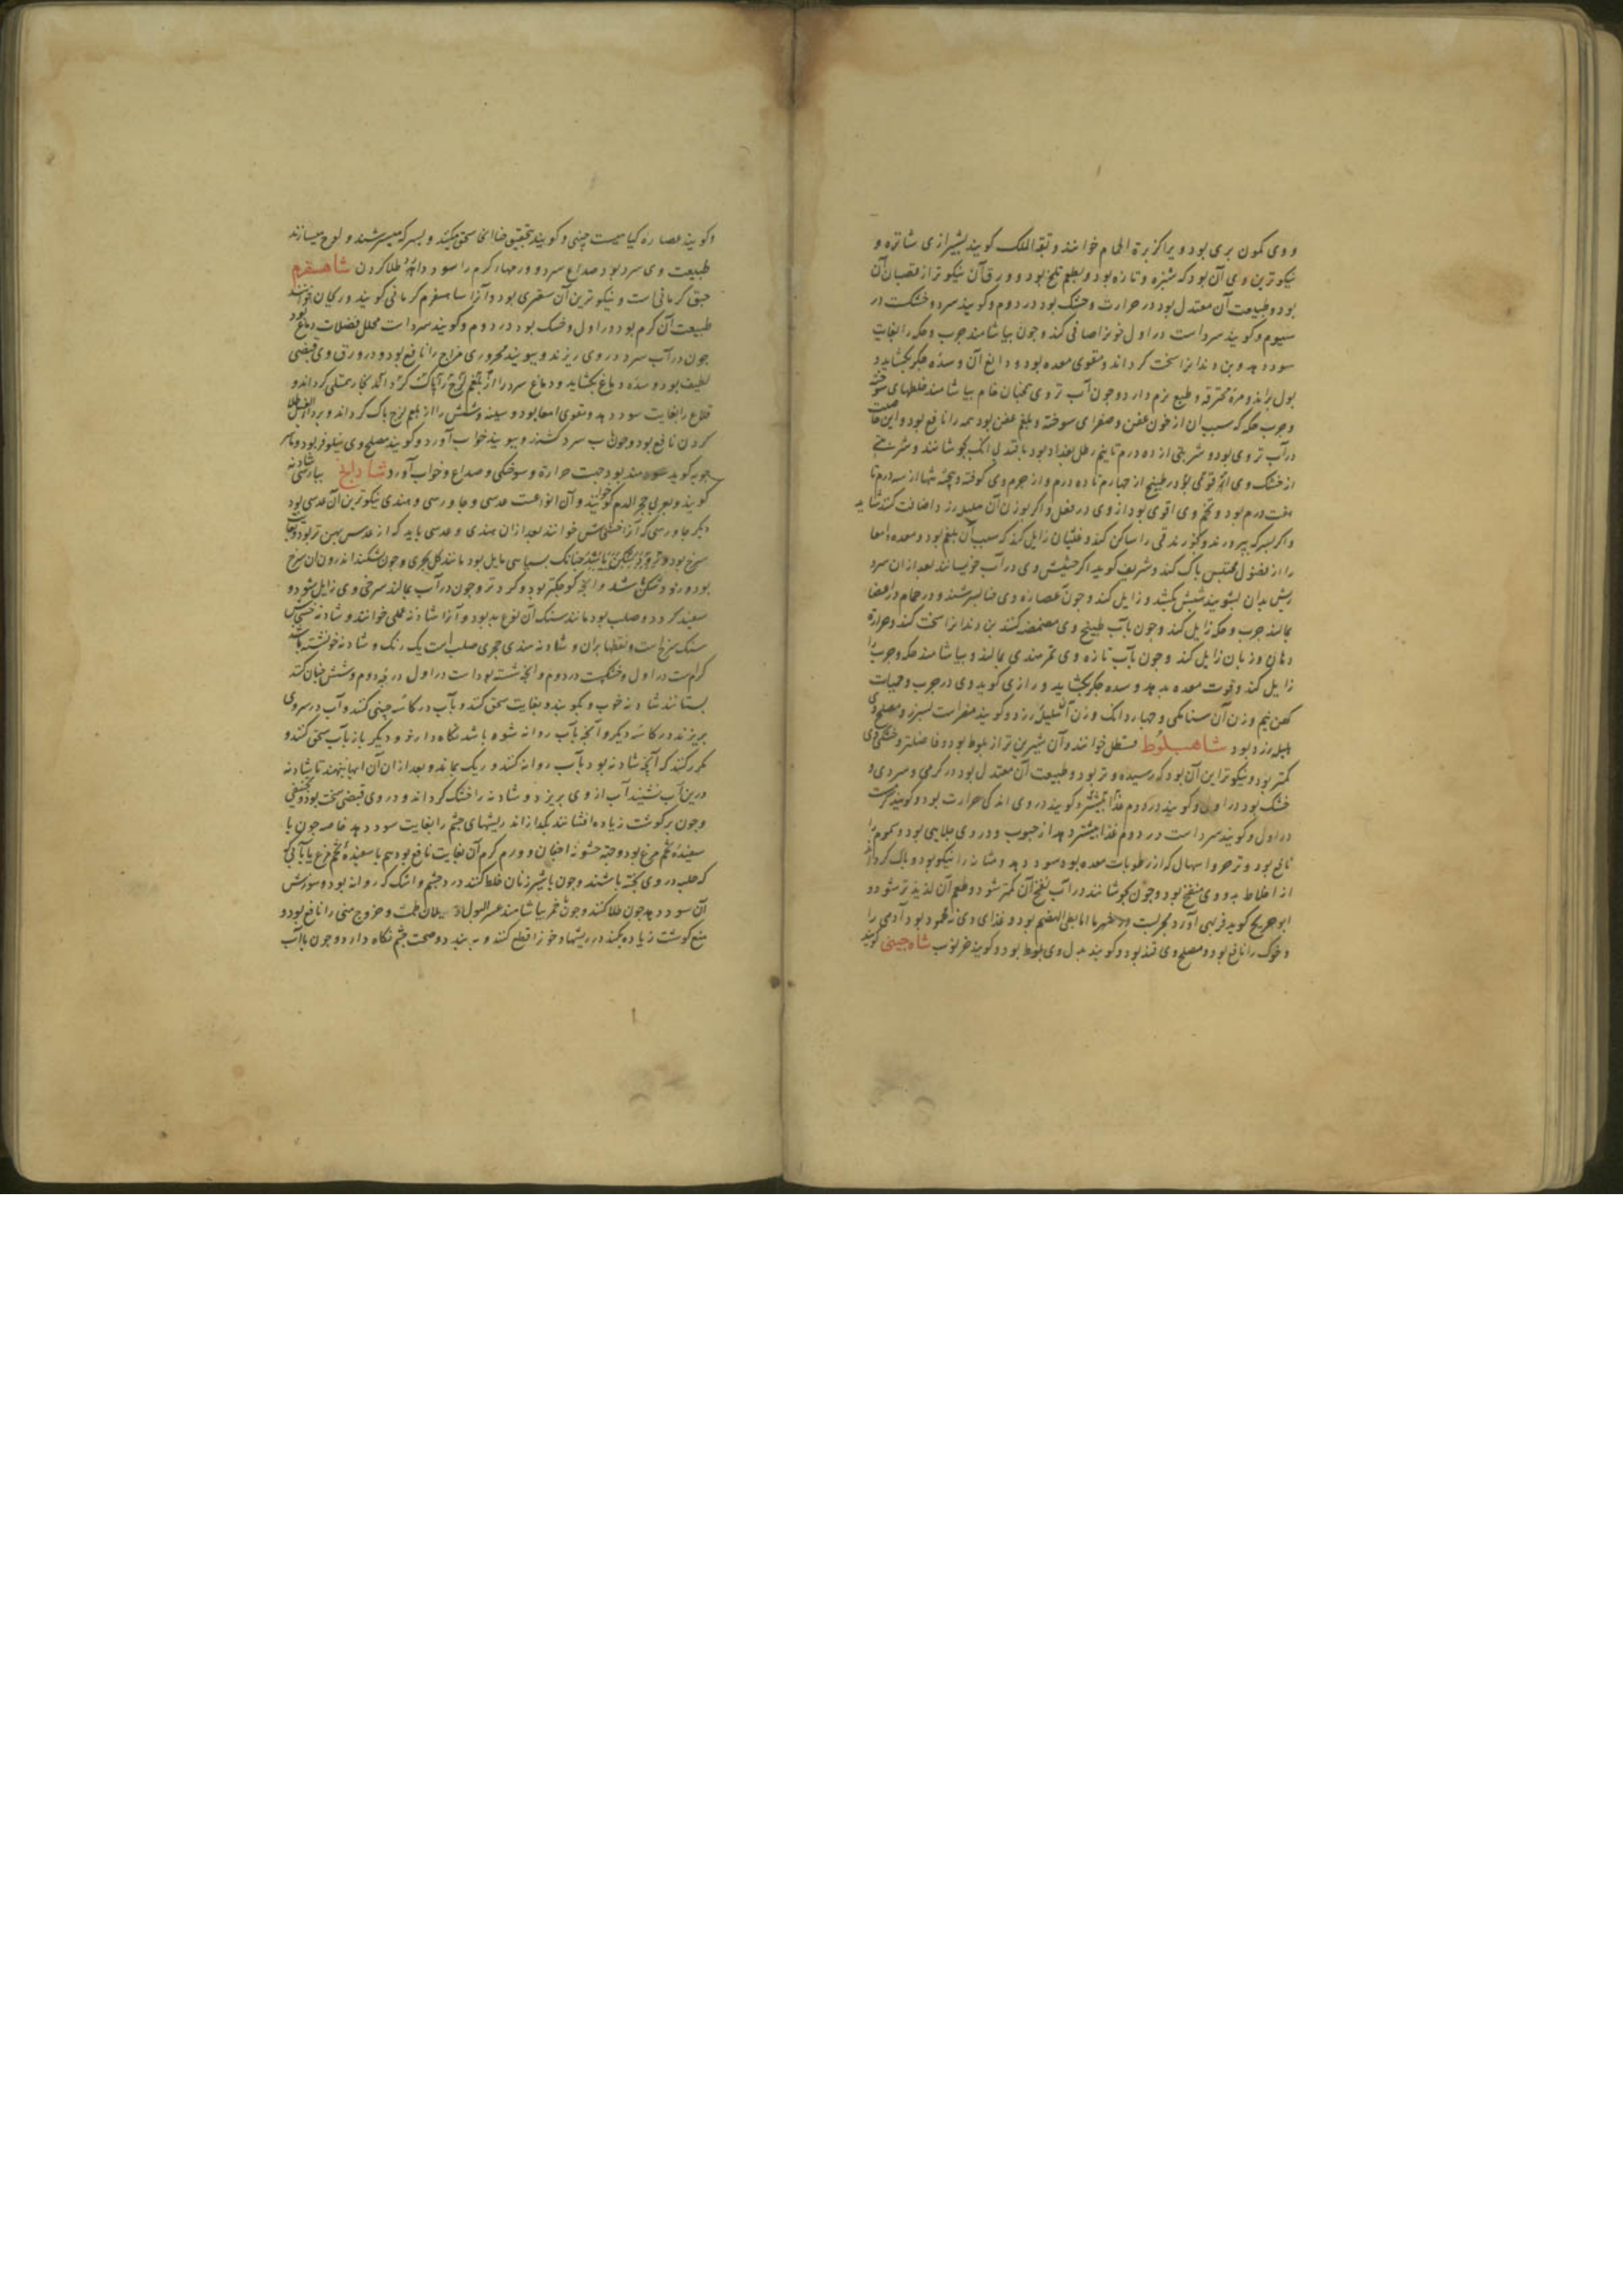 و وی کمون بری بود و ویرا کزبرة الحمام خوانند و بقلة الملک کویند بشیرازی شاتره و
نیکوترین وی آن بود که سبزه و تازه بود و بطعم تلخ بود و ورق آن نیکوتر از قضبان آن
بود و طبیعت آن معتدل بود در حرارت و خشک بود در دوم و کویند سرد و خشکست در
سیوم و کویند سرد است در اول خونرا صافی کند و چون بیاشامند جرب و حکه را بغایت
سود دهد و بن دندانرا سخت کرداند و مقوی معده بود و دابغ آن و سده جکر بکشاید و
بول براند و مره محترقه و طبع نرم دارد و چون آب تر وی همچنان خام بیاشامند خلطهای سوخته
و جرب و حکه که سبب آن از خون عفن و صفرای سوخته و بلغم عفن بود همه را نافع بود و این خاصیت
در آب تر وی بود و شربتی از ده درم تا نیم رطل بغداد بود با قند بی آنک بجوشانند و شربتی
از خشک وی در طبیخ از چهار درم تا ده درم و از جرم وی کوفته و بیخته تنها از سه درم تا
هفت درم بود و تخم وی اقوی بود از وی در فعل و اکر بوزن آن هلیله زرد اضافت کنند شاید
و اکر بسرکه بپرورند و بخورند قی را ساکن کند و غثیان زایل کند که سبب آن بلغم بود و معده و امعا
را از فضول محتبس پاک کند و شریف کوید اکر حشیش وی در آب خیسانند بعد از آن سر و
ریش بدان بشویند شپش بکشد و زایل کند و چون عصاره وی حنا بسرشند و در حمام در اعضا
بمالند جرب و حکه زایل کند و چون بآب طبیخ وی مضمضه کنند بن دندانرا سخت کند و حرارة
دهان و زبان زایل کند و چون بآب تازه وی تمر هندی بمالند و بیاشامند حکه و جرب را
زایل کند و قوت معده بدهد و سده جکر بکشاید و رازی کوید بدل وی در جرب و حمیات
کهن نیم وزن آن سنامکی و چهار دانک وزن آن هلیله زرد و کویند مضر است بسپرز و مصلح وی
هلیله زرد بود شاهبلوط قسطل خوانند و آن شیرین تر از بلوط بود و فاضلتر و خشکی وی
کمتر بود و نیکوترین آن بود که رسیده و تر بود و طبیعت آن معتدل بود در کرمی و سردی و
خشک بود در اول و کویند در دوم غذا بیشتر و کویند در وی اندکی حرارت بود و کویند کرمست
در اول و کویند سرد است در دوم غذا بیشتر دهد از حبوب و در وی صلابتی بود و سموم را
نافع بود و قرحه و اسهال که از رطوبات معده بود سود دهد و مثانه را نیکو بود و پاک کرداند
از اخلاط بد و وی منفخ بود و چون بجوشانند در آب نفخ آن کمتر شود و طعم آن لذیذتر شود و
ابو جریج کوید فربهی آورد اما بطی الهضم بود و غذای وی محمود بود آدمی را
و خوک را نافع بود و مصلح وی قند بود و کویند بدل وی بلوط بود و کویند خرنوب شاه چینی کویند
و کویند عصاره کیاهیست چینی و کویند بتحقیق حنا سحق میکنند و بسرکه میسرشند و لوح میسازند
طبیعت وی سرد بود صداع سرد و ورمهاء کرم را سود دارد طلا کردن شاهسفرم
حبق کرمانی است و نیکوترین آن سعتری بود و آنرا شاهسفرم کرمانی کویند و ریحان خوانند
طبیعت آن کرم بود در اول و خشک بود در دوم و کویند سرد است محلل فضلات دماغ بود
چون در آب سرد در وی ریزند و ببویند محروری مزاج را نافع بود و در ورق وی قبضی
لطیف بود و سده دماغ بکشاید و دماغ سرد را از بلغم لزج پاک کرداند بخار ممتلی کرداند و
قلاع را بغایت سود دهد و مقوی امعا بود و سینه و شش را از بلغم لزج پاک کرداند و طلا
کردن نافع بود و چون آب سرد کشند و ببویند خواب آورد و کویند مصلح وی نیلوفر بود و ماسر
جویه کوید سودمند بود جهت حرارة و سوختکی و صداع و خواب آورد شادنج بپارسی شادنه
کویند و بعربی حجر الدم خوانند و آن انواعست عدسی و جاورسی و هندی نیکوترین آن عدسی بود
دیکر جاورسی که آنرا خشخاشی خوانند بعد از آن هندی و عدسی باید که از عدس پهن تر بود و بغایت
سرخ بود چنانک بسیاهی مایل بود مانند کل بحری و چون بشکنند اندرون آن سرخ
بود و زود شکن باشد و آنچ کوچکتر بود و کردتر و چون در آب بمالند سرخی وی زایل شود و
سفید کردد و صلب بود مانند سنک آن نوع بد بود و آنرا شادنه عملی خوانند و شادنه خشخاشی
سنک سرخ است و نقطها بران و شادنه هندی حجری صلب است یک رنک و شادنه نشسته باشد
کرم است در اول و خشکست در دوم و آنچه شسته بود است در اول در دوم و شستنش چنان کنند
بستانند شادنه خوب و بکوبند و بغایت سحق کنند و بآب در کاسه چینی کنند و آب در سر وی
بریزند در کاسه دیکر و آنچه بآب روانه شود باشد نکاه دارند و دیکر باز بآب سحق کنند و
مکرر کنند که آنچه شادنه بود بآب روانه کنند و ریک بماند و بعد از آن آن آبها بنهند تا شادنه
در بن آب نشیند آب از وی بریزد و شادنه را خشک کرداند و در وی قبضی سخت بود و تجفیفی
و چون بر کوشت زیاده افشانند بکدازاند ریشهای چشم را بغایت سود دهد خاصه چون با
سفیده تخم مرغ بود و جهة خشونة اجفان و ورم کرم آن بغایت نافع بود هم با سفیده تخم مرغ یا بآبی
که حلبه در وی پخته باشند و چون با شیر زنان خلط کنند درد چشم و اشک که روانه بود و سوزش
آن سود دهد چون طلا کنند و چون با خمر بیاشامند عسر البول و سیلان طمث و خروج منی را نافع بود و
منع کوشت زیاده بکند در ریشها و خون را قطع کنند و به بندد و صحت چشم نکاه دارد و چون با آب